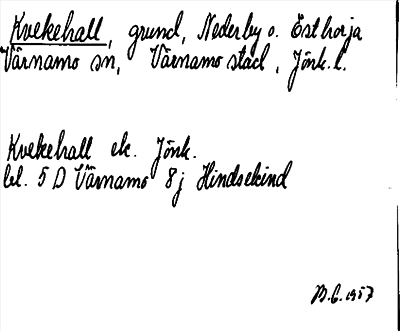 Kvekehall, grund, Nederby o. Östhorja
Värnamo sn, Värnamo stad, Jönk. l.
Kvekehall ek. Jönk.
bl. 5 D Värnamo 8j Hindsekind
B.G. 1957